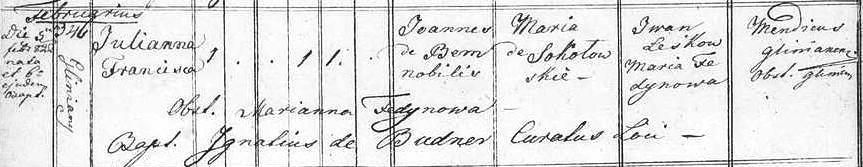 Februarius
Die 5
nata
et 6
ejusdem
Bapt.
346
Gliniany
Julianna
Francisca
1 . . 1 1 . .
Joannes
de Bem
nobilis
Maria
de Sokołow
skie –
Iwan
Leśkow
Maria Fe
dynowa
Mendicus
Obst.
Obst. Marianna Fedynowa –
Bapt. Ignatius de Budner Curatus Loci –